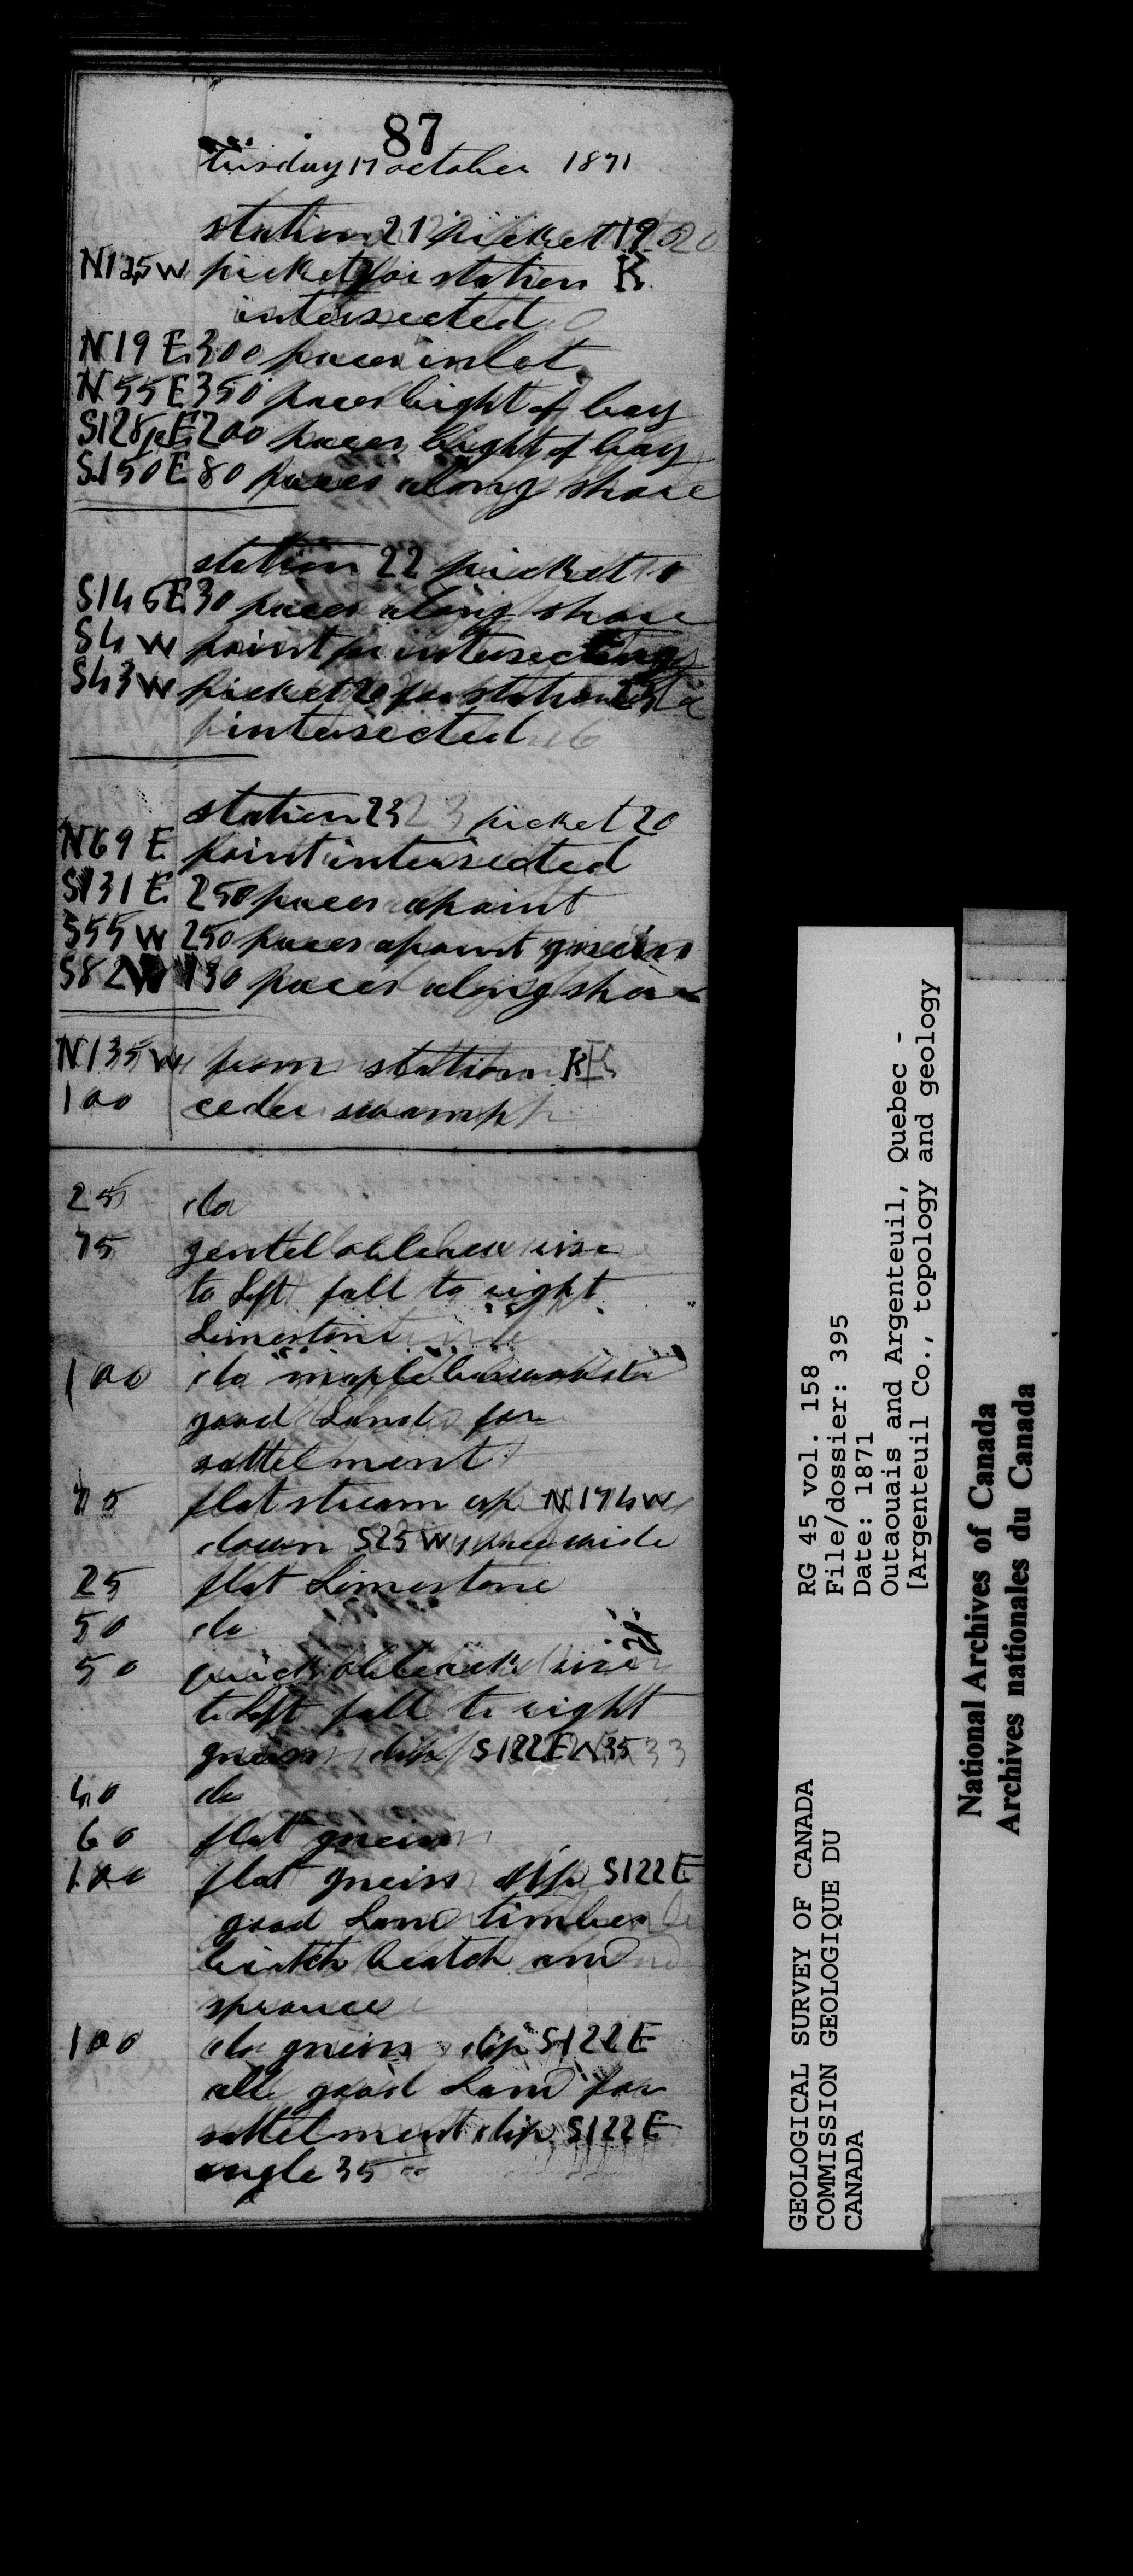 87
tusday 17 october 1871
station 21 picket 19
N125W picket for station K
intersected
N19E 300 paces inlet
N55E 350 paces bight of bay
S128E 200 paces bight of bay
S150E 80 paces along shore
station 22 picket
S145E 30 paces along shore
S4W point for intersecting
S43W picket 20 for station
intersected
station 23 picket 20
N69E point intersected
S131E 250 paces apoint
S55W 250 paces apoint gneiss
S82W 130 paces along shore
N135W from station K
100 ceder swamp
25 do
75 gentel oblecue rise
to Left fall to right
Limestone
100 do maple
good Land for
sattelment
75 flat stream up N174W
down S25W 1 pace wide
25 flat Limestone
50 do
50 quick rise
to Left fall to right
gneiss dip S122E 35
40 do
60 flat gneiss
100 flat gneiss dip S122E
good Land timber
birtch beatch and
sprouce
100 do gneiss dip S122E
all good Land for
sattelment dip S122E
angle 35
GEOLOGICAL SURVEY OF CANADA
COMMISSION GEOLOGIQUE DU
CANADA
RG 45 vol. 158
File/dossier: 395
Date: 1871
Outaouais and Argenteuil, Quebec -
[Argenteuil Co., topology and geology
National Archives of Canada
Archives nationales du Canada